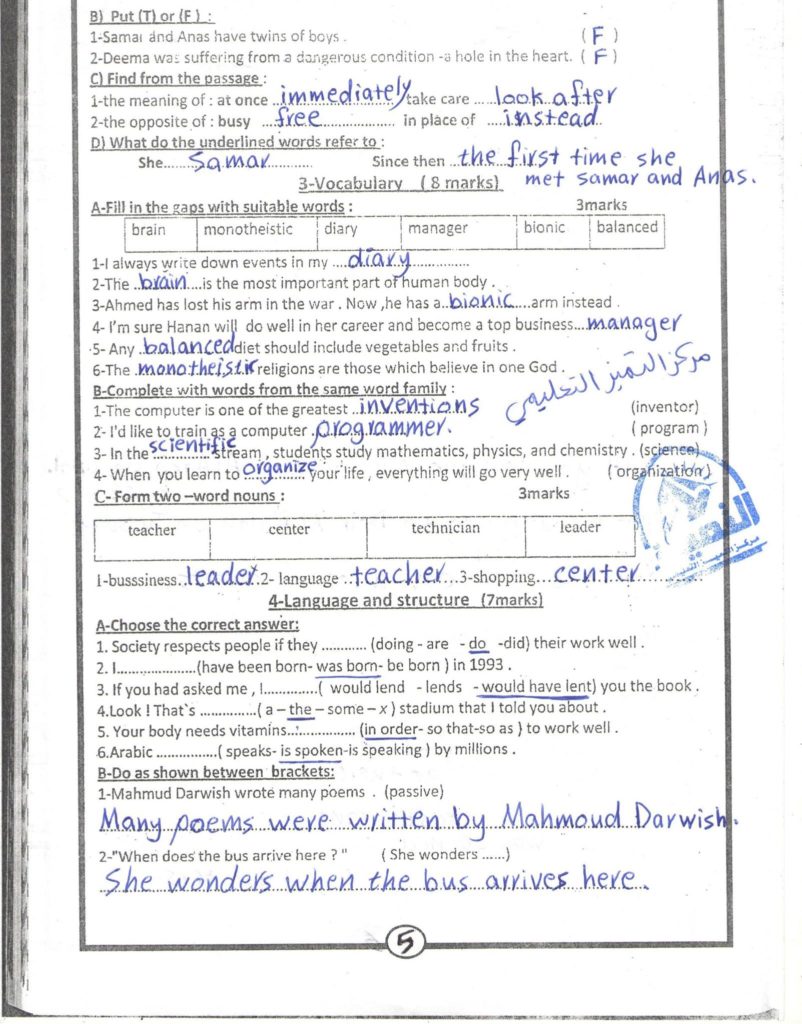 B) Put (T) or (F) :
1-Samar and Anas have twins of boys . ( F )
2-Deema was suffering from a dangerous condition -a hole in the heart. ( F )
C) Find from the passage :
1-the meaning of : at once ..immediately take care .....look after
2-the opposite of : busy ...free.................. in place of ....instead
D) What do the underlined words refer to :
She.....Samar......... Since then ..the first time she
met samar and Anas.
3-Vocabulary ( 8 marks)
A-Fill in the gaps with suitable words : 3marks
brain monotheistic diary manager bionic balanced
1-I always write down events in my ....diary..............
2-The ..brain....is the most important part of human body .
3-Ahmed has lost his arm in the war . Now ,he has a..bionic....arm instead .
4- I'm sure Hanan will do well in her career and become a top business...manager
5- Any .balanced diet should include vegetables and fruits .
6-The .monotheistic religions are those which believe in one God .
مركز التميز التعليمي
B-Complete with words from the same word family :
1-The computer is one of the greatest ..inventions (inventor)
2- I'd like to train as a computer .programmer. ( program )
3- In the scientific stream , students study mathematics, physics, and chemistry . (science)
4- When you learn to organize your life , everything will go very well . ( organization )
C- Form two –word nouns : 3marks
teacher center technician leader
1-busssiness..leader.2- language .teacher...3-shopping...center
4-Language and structure (7marks)
A-Choose the correct answer:
1. Society respects people if they ............ (doing - are - do -did) their work well .
2. I.....................(have been born- was born- be born ) in 1993 .
3. If you had asked me , I.............( would lend - lends - would have lent) you the book .
4.Look ! That`s ..............( a – the – some – x ) stadium that I told you about .
5. Your body needs vitamins................ (in order- so that-so as ) to work well .
6.Arabic ...............( speaks- is spoken-is speaking ) by millions .
B-Do as shown between brackets:
1-Mahmud Darwish wrote many poems . (passive)
Many poems were written by Mahmoud Darwish.
2-"When does the bus arrive here ? " ( She wonders ......)
She wonders when the bus arrives here.
5